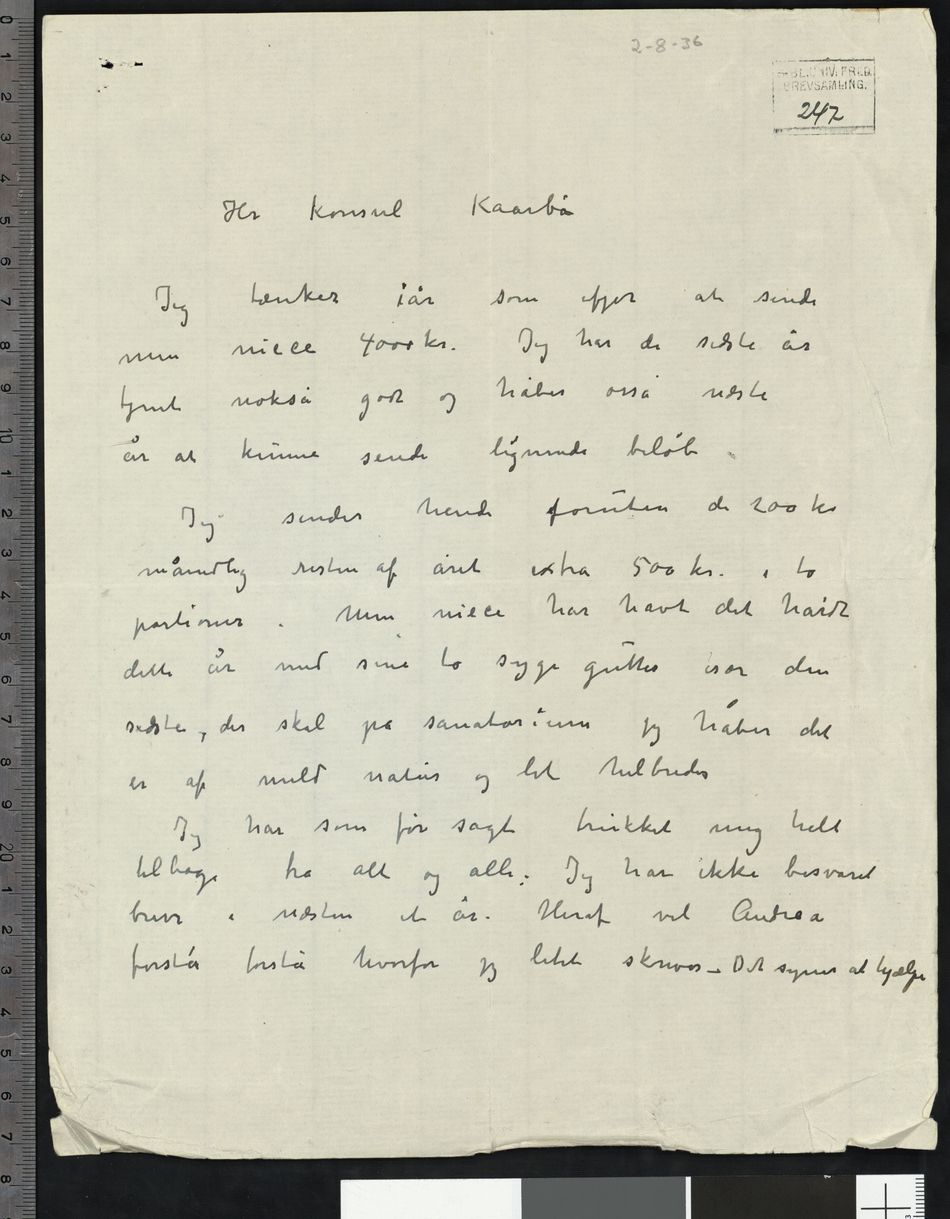 2-8-36
BL. UNIV. FRED.
BREVSAMLING.
247
Hr konsul Kaarbö
Jeg tænker iår som ifjor at sende
min niece 4000 kr. Jeg har de sidste år
tjent nokså godt og håber osså næste
år at kunne sende lignende beløb.
Jeg sender hende foruten de 200 kr
månedlig resten af året extra 500 kr. i to
portioner. Min niece har havt det hårdt
dette år med sine to syge gutter især den
sidste, der skal på sanatorium jeg håber det
er af mild natur og let helbredes
Jeg har som før sagt trukket mig helt
tilbage fra alt og alle. Jeg har ikke besvaret
breve i næsten et år. Heraf vil Andrea
forstår forstå hvorfor jeg lidet skriver. – Det synes at hjælpe